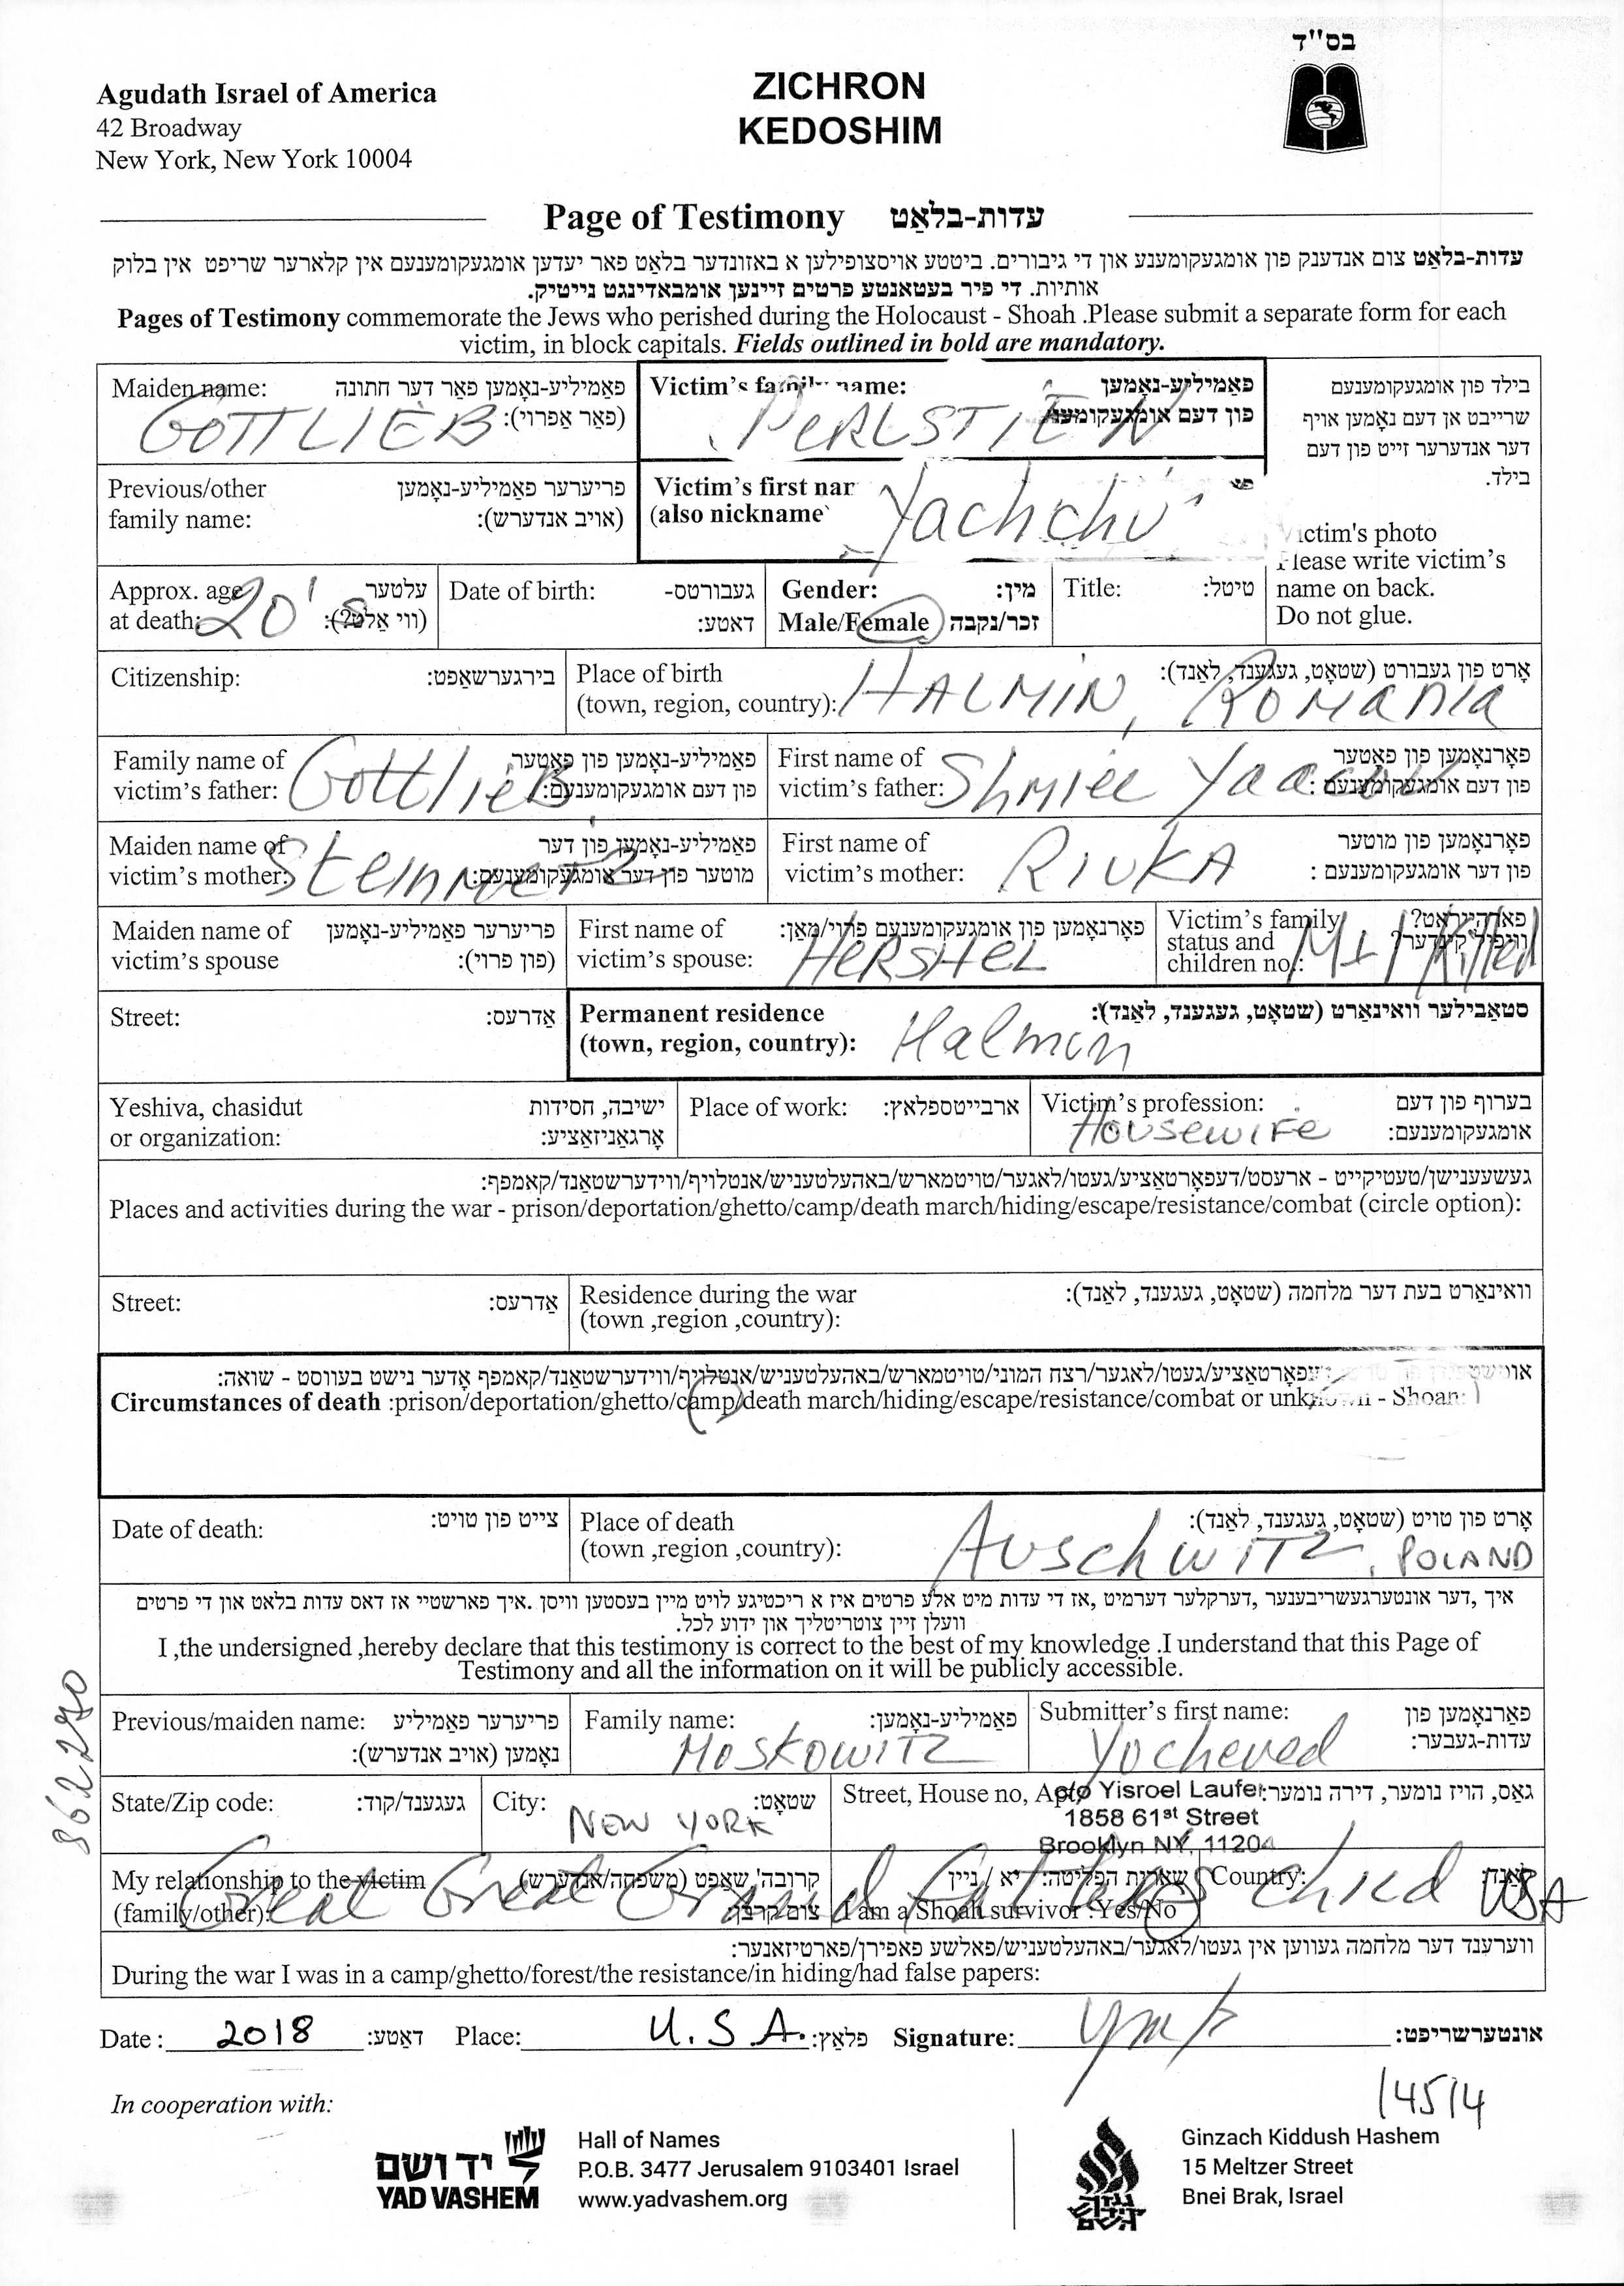 בס"ד
Agudath Israel of America
42 Broadway
New York, New York 10004
ZICHRON
KEDOSHIM
Page of Testimony עדות-בלאַט
עדות-בלאַט צום אנדענק פון אומגעקומענע און די גיבורים. ביטטע אויסצופילען א באזונדער בלאַט פאר יעדען אומגעקומענעם אין קלארער שריפט אין בלוק
אותיות. די פיר בעטאנטע פרטים זיינען אומבאדינגט נייטיק.
Pages of Testimony commemorate the Jews who perished during the Holocaust - Shoah .Please submit a separate form for each
victim, in block capitals. Fields outlined in bold are mandatory.
Maiden name: פאַמיליע-נאָמען פאַר דער חתונה
(פאַר אַפרוי):
GOTTLIEB
Victim's family name: פאַמיליע-נאָמען
פון דעם אומגעקומענעם
PERLSTIEN
בילד פון אומגעקומענעם
שרייבט אן דעם נאָמען אויף
דער אנדערער זייט פון דעם
בילד.
Previous/other פריערער פאַמיליע-נאָמען
family name: (אויב אנדערש):
Victim's first nar
(also nickname
Yachchu
Victim's photo
Please write victim's
name on back.
Do not glue.
Approx. age עלטער
at death: (ווי אַלט?):
20's
Date of birth: געבורטס-
דאַטע:
Gender: מין:
Male/Female זכר/נקבה
Title: טיטל:
Citizenship: בירגערשאַפט:
Place of birth אָרט פון געבורט (שטאָט, געגענד, לאַנד):
(town, region, country): HALMIN, ROMANIA
Family name of פאַמיליע-נאָמען פון פאָטער
victim's father: פון דעם אומגעקומענעם:
Gottlieb
First name of פאָרנאָמען פון פאָטער
victim's father: פון דעם אומגעקומענעם:
Shmiel Yaacov
Maiden name of פאַמיליע-נאָמען פון דער
victim's mother: מוטער פון דער אומגעקומענעם:
Steinmetz
First name of פאָרנאָמען פון מוטער
victim's mother: פון דער אומגעקומענעם :
RIVKA
Maiden name of פריערער פאַמיליע-נאָמען
victim's spouse (פון פרוי):
First name of פאָרנאָמען פון אומגעקומענעם פרוי/מאַן:
victim's spouse: HERSHEL
Victim's family פאַרהייראַט?
status and וויפיל קינדער?
children no.: M + 1 Killed
Street: אַדרעס:
Permanent residence סטאַבילער וואוינאָרט (שטאָט, געגענד, לאַנד):
(town, region, country): Halmin
Yeshiva, chasidut ישיבה, חסידות
or organization: אָרגאַניזאַציע:
Place of work: ארבייטספלאַץ:
Victim's profession: בערוף פון דעם
אומגעקומענעם:
HOUSEWIFE
געשעענישן/טעטיקייט - ארעסט/דעפאָרטאַציע/געטו/לאַגער/טויטמארש/באהעלטעניש/אנטלויף/ווידערשטאַנד/קאמפף:
Places and activities during the war - prison/deportation/ghetto/camp/death march/hiding/escape/resistance/combat (circle option):
Street: אַדרעס:
Residence during the war וואוינאָרט בעת דער מלחמה (שטאָט, געגענד, לאַנד):
(town ,region ,country):
דעפאָרטאַציע/געטו/לאַגער/רצח המוני/טויטמארש/באהעלטעניש/אנטלויף/ווידערשטאַנד/קאמפף אָדער נישט בעוואוסט - שואה:
Circumstances of death :prison/deportation/ghetto/camp/death march/hiding/escape/resistance/combat or unknown - Shoah:
Date of death: צייט פון טויט:
Place of death אָרט פון טויט (שטאָט, געגענד, לאַנד):
(town ,region ,country): Auschwitz, POLAND
איך ,דער אונטערגעשריבענער ,דערקלער דערמיט ,אז די עדות מיט אלע פרטים איז א ריכטיגע לויט מיין בעסטען וויסן .איך פארשטיי אז דאס עדות בלאט און די פרטים
וועלן זיין צוטריטליך און ידוע לכל.
I ,the undersigned ,hereby declare that this testimony is correct to the best of my knowledge .I understand that this Page of
Testimony and all the information on it will be publicly accessible.
862270
Previous/maiden name: פריערער פאַמיליע
נאָמען (אויב אנדערש):
Family name: פאַמיליע-נאָמען:
MOSKOWITZ
Submitter's first name: פאָרנאָמען פון
עדות-געבער:
Yocheved
State/Zip code: געגענד/קוד:
City: שטאָט:
NEW YORK
Street, House no, Apt גאַס, הויז נומער, דירה נומער:
c/o Yisroel Laufer
1858 61st Street
Brooklyn NY, 11204
My relationship to the victim קרובה'שאַפט (משפחה/אנדערש)
(family/other): צום קרבן:
Great Great Grand Fathers child
שארית הפליטה: יא / ניין
I am a Shoah survivor :Yes/No
Country: לאַנד:
USA
ווערענד דער מלחמה געווען אין געטו/לאַגער/באהעלטעניש/פאלשע פאפירן/פארטיזאנער:
During the war I was in a camp/ghetto/forest/the resistance/in hiding/had false papers:
Date : 2018 דאַטע: Place: U.S.A. פלאַץ: Signature: אונטערשריפט:
14514
In cooperation with:
יד ושם
YAD VASHEM
Hall of Names
P.O.B. 3477 Jerusalem 9103401 Israel
www.yadvashem.org
גנזך
קידוש
השם
Ginzach Kiddush Hashem
15 Meltzer Street
Bnei Brak, Israel